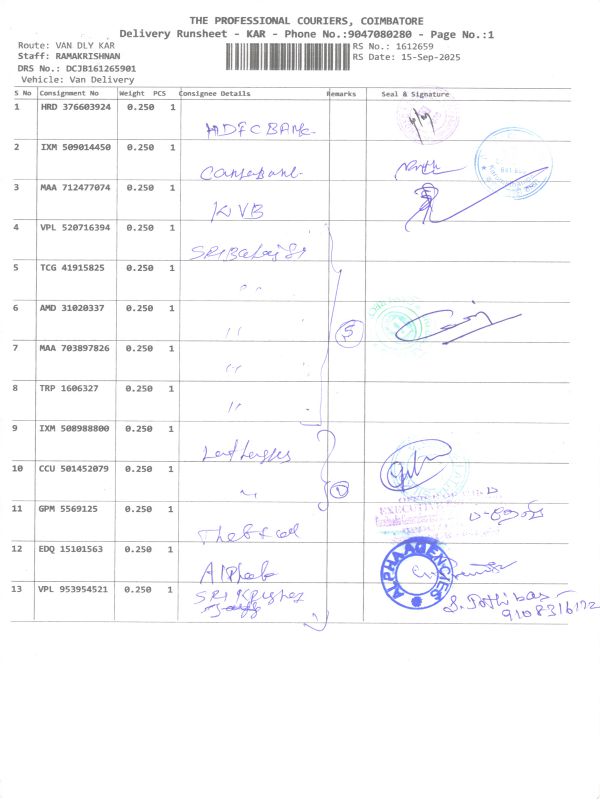 THE PROFESSIONAL COURIERS, COIMBATORE
Delivery Runsheet - KAR - Phone No.:9047080280 - Page No.:1
Route: VAN DLY KAR RS No.: 1612659
Staff: RAMAKRISHNAN RS Date: 15-Sep-2025
DRS No.: DCJB161265901
Vehicle: Van Delivery
S No Consignment No Weight PCS Consignee Details Remarks Seal & Signature
1 HRD 376603924 0.250 1
HDFC BANK
2 IXM 509014450 0.250 1
3 MAA 712477074 0.250 1
KVB
4 VPL 520716394 0.250 1
5 TCG 41915825 0.250 1
"
6 AMD 31020337 0.250 1
" 5
7 MAA 703897826 0.250 1
"
8 TRP 1606327 0.250 1
"
9 IXM 508988800 0.250 1
10 CCU 501452079 0.250 1
"
11 GPM 5569125 0.250 1
EXECUTIVE
12 EDQ 15101563 0.250 1
Alpha ALPHA AGENCIES
13 VPL 953954521 0.250 1
SRI Krishna